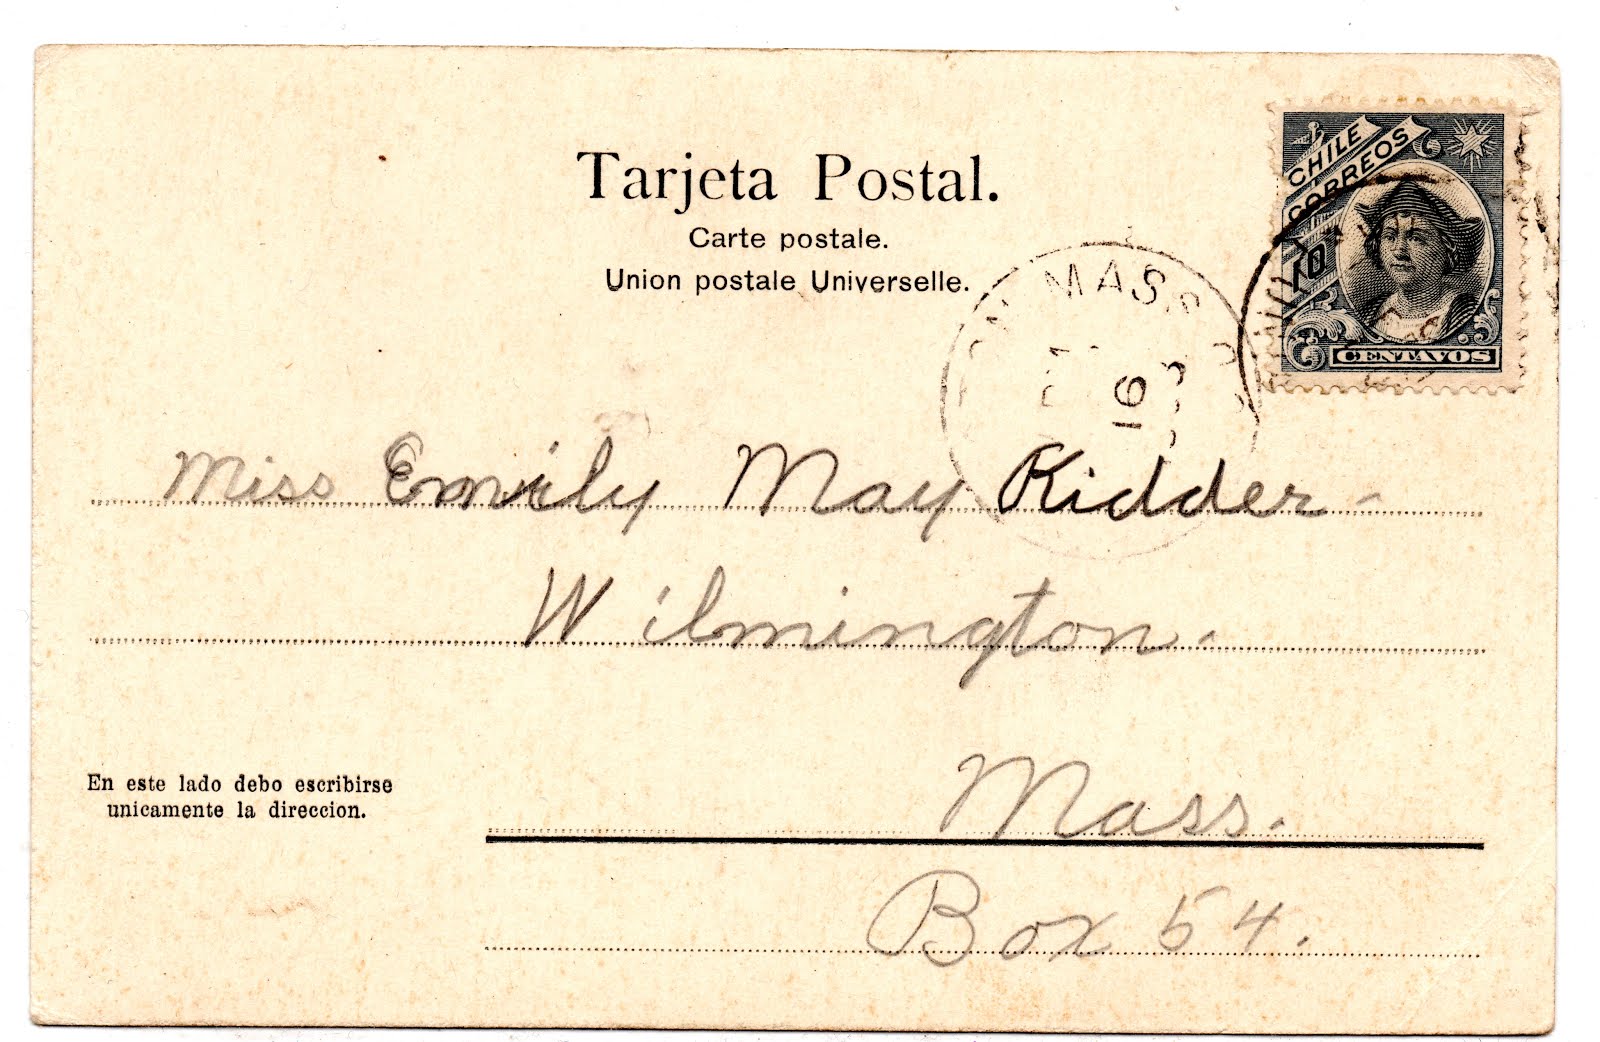 Tarjeta Postal.
Carte postale.
Union postale Universelle.
CHILE
CORREOS
10
CENTAVOS
MASS
16
Miss Emily May Kidder-
Wilmington.
Mass.
Box 54.
En este lado debo escribirse
unicamente la direccion.